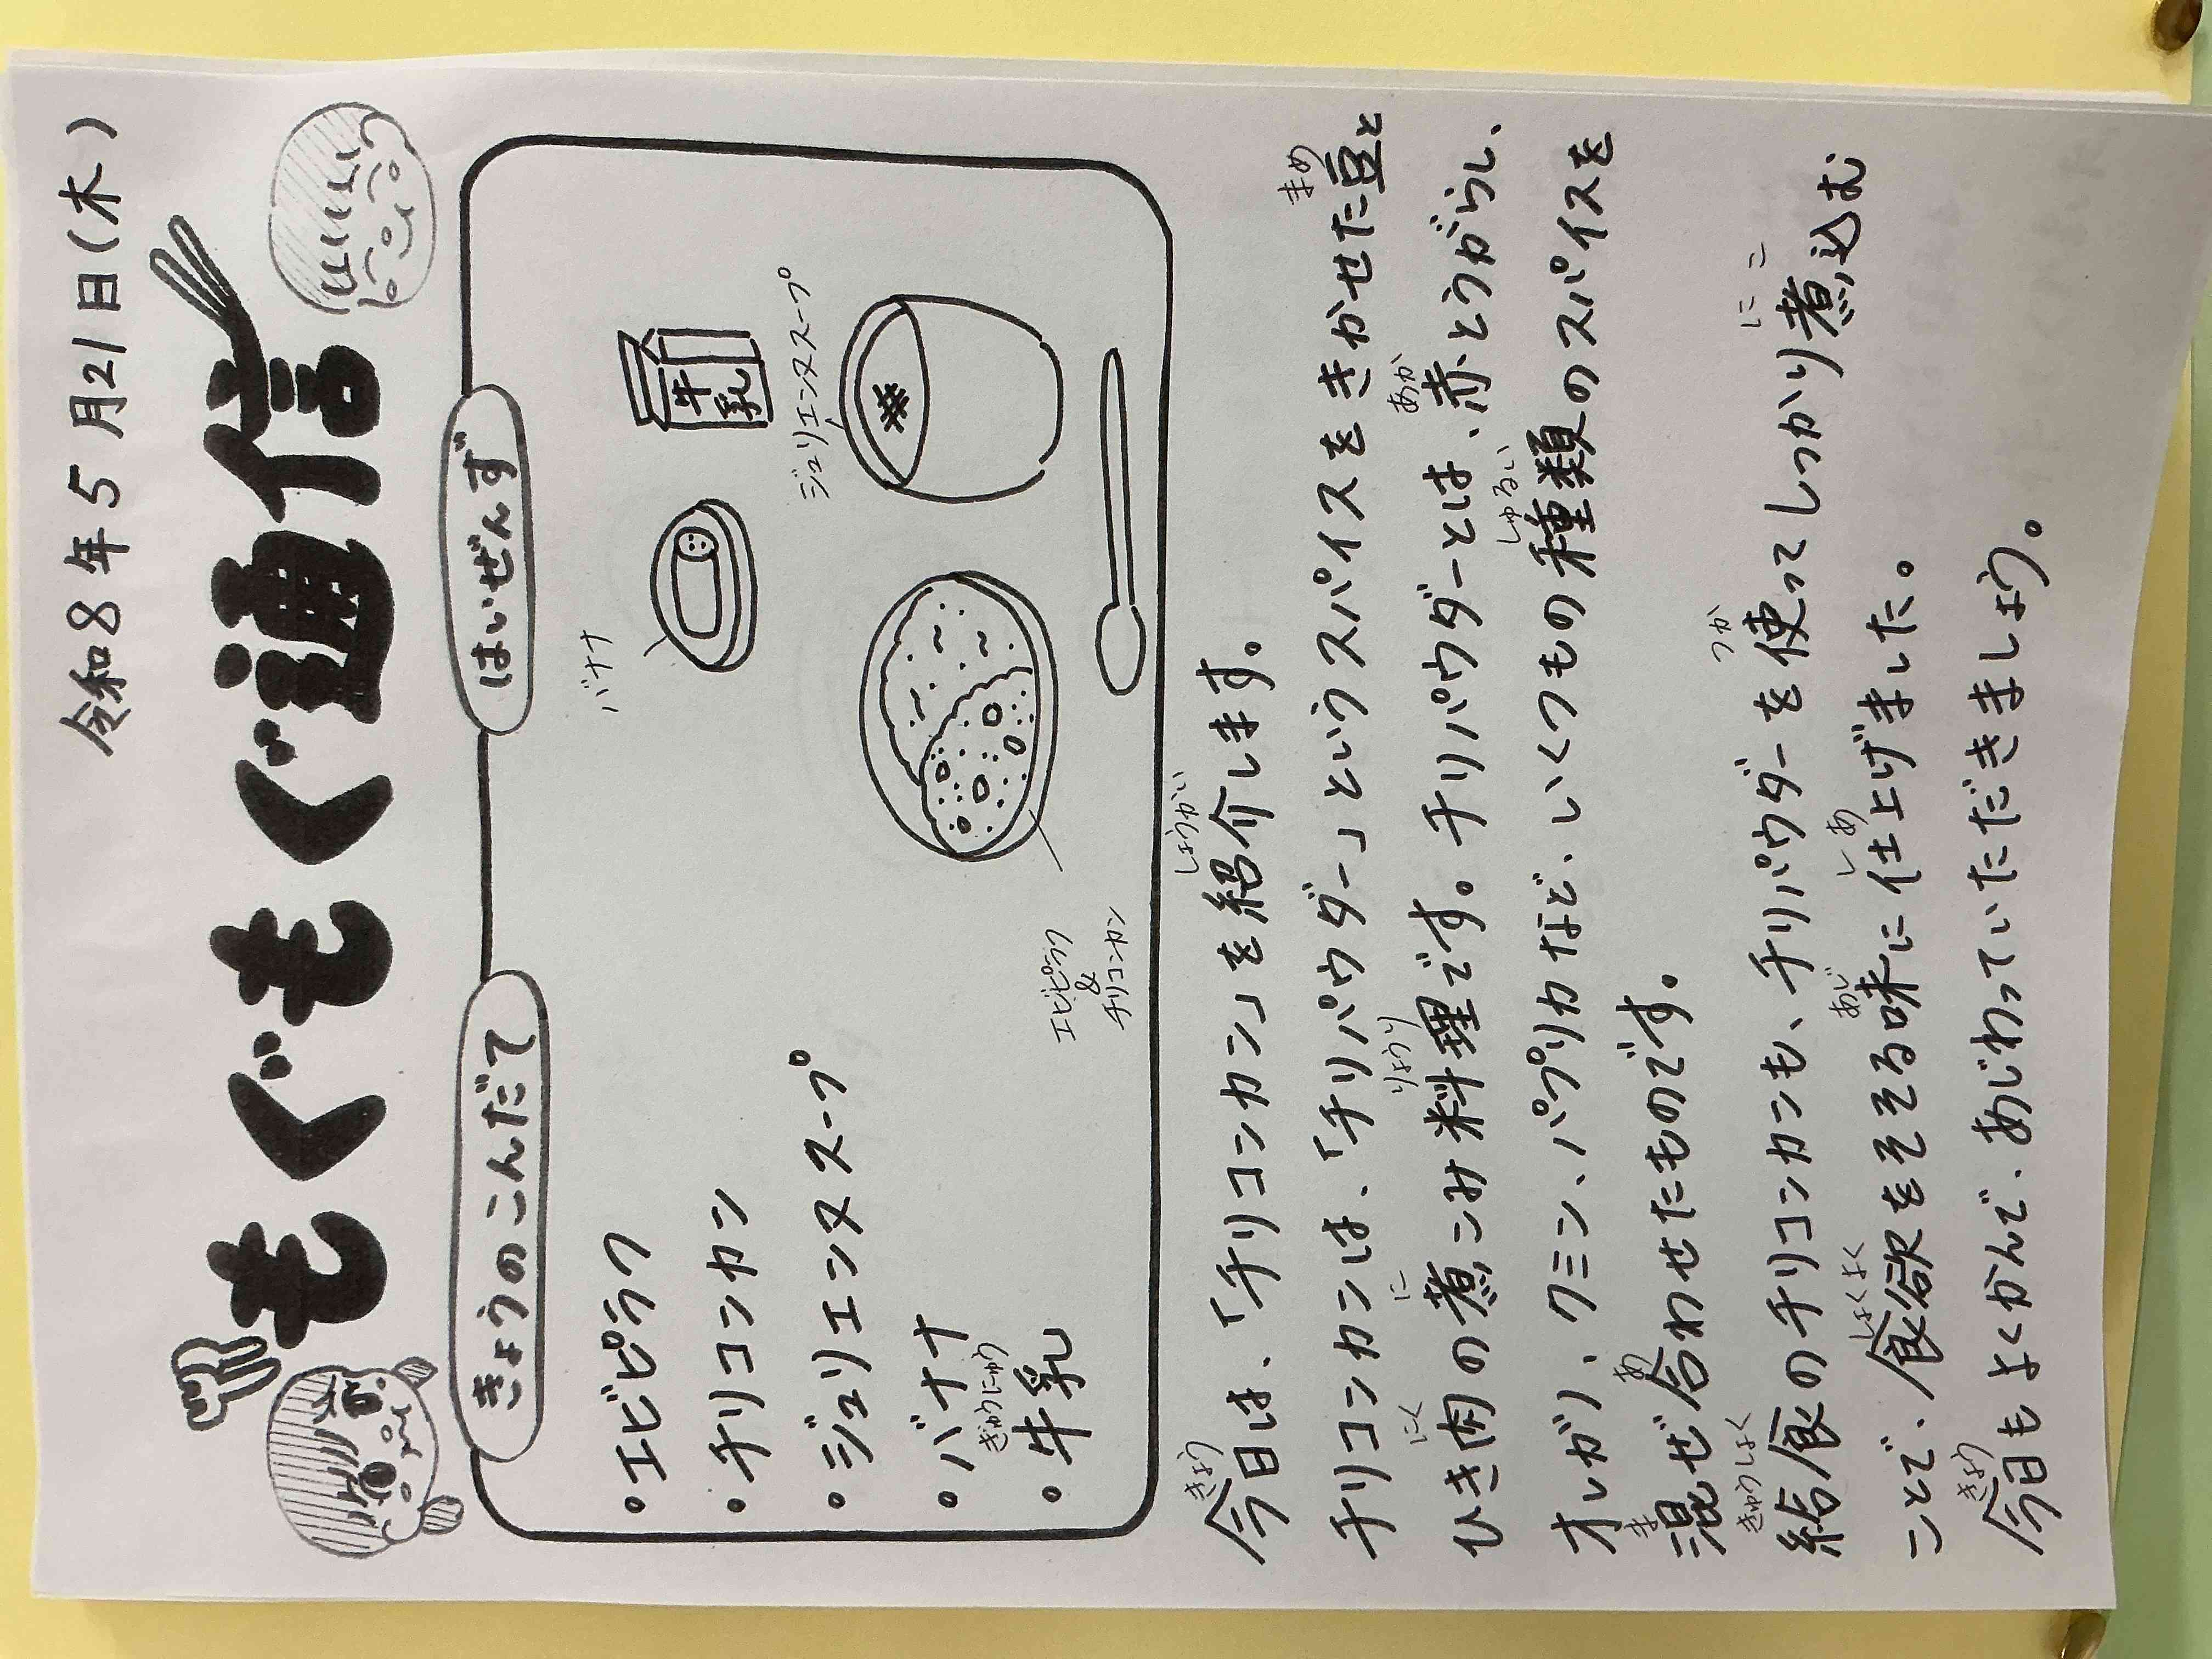 令和8年5月21日(木)
もぐもぐ通信
きょうのこんだて
はいぜんず
・エビピラフ
・チリコンカン
・ジュリエンヌスープ
・バナナ
ぎゅうにゅう
・牛乳
バナナ
牛乳
ジュリエンヌスープ
エビピラフ
&
チリコンカン
きょう しょうかい
今日は、「チリコンカン」を紹介します。
まめ
チリコンカンは、「チリパウダー」というスパイスをきかせた豆と
にく に りょうり あか
ひき肉の煮こみ料理です。チリパウダーとは、赤とうがらし、
しゅるい
オレガノ、クミン、パプリカなど、いくつもの種類のスパイスを
ま あ
混ぜ合わせたものです。
きゅうしょく つか に こ
給食のチリコンカンも、チリパウダーを使ってしっかり煮込む
しょくよく あじ し あ
ことで、食欲をそそる味に仕上げました。
きょう
今日もよくかんで、あじわっていただきましょう。